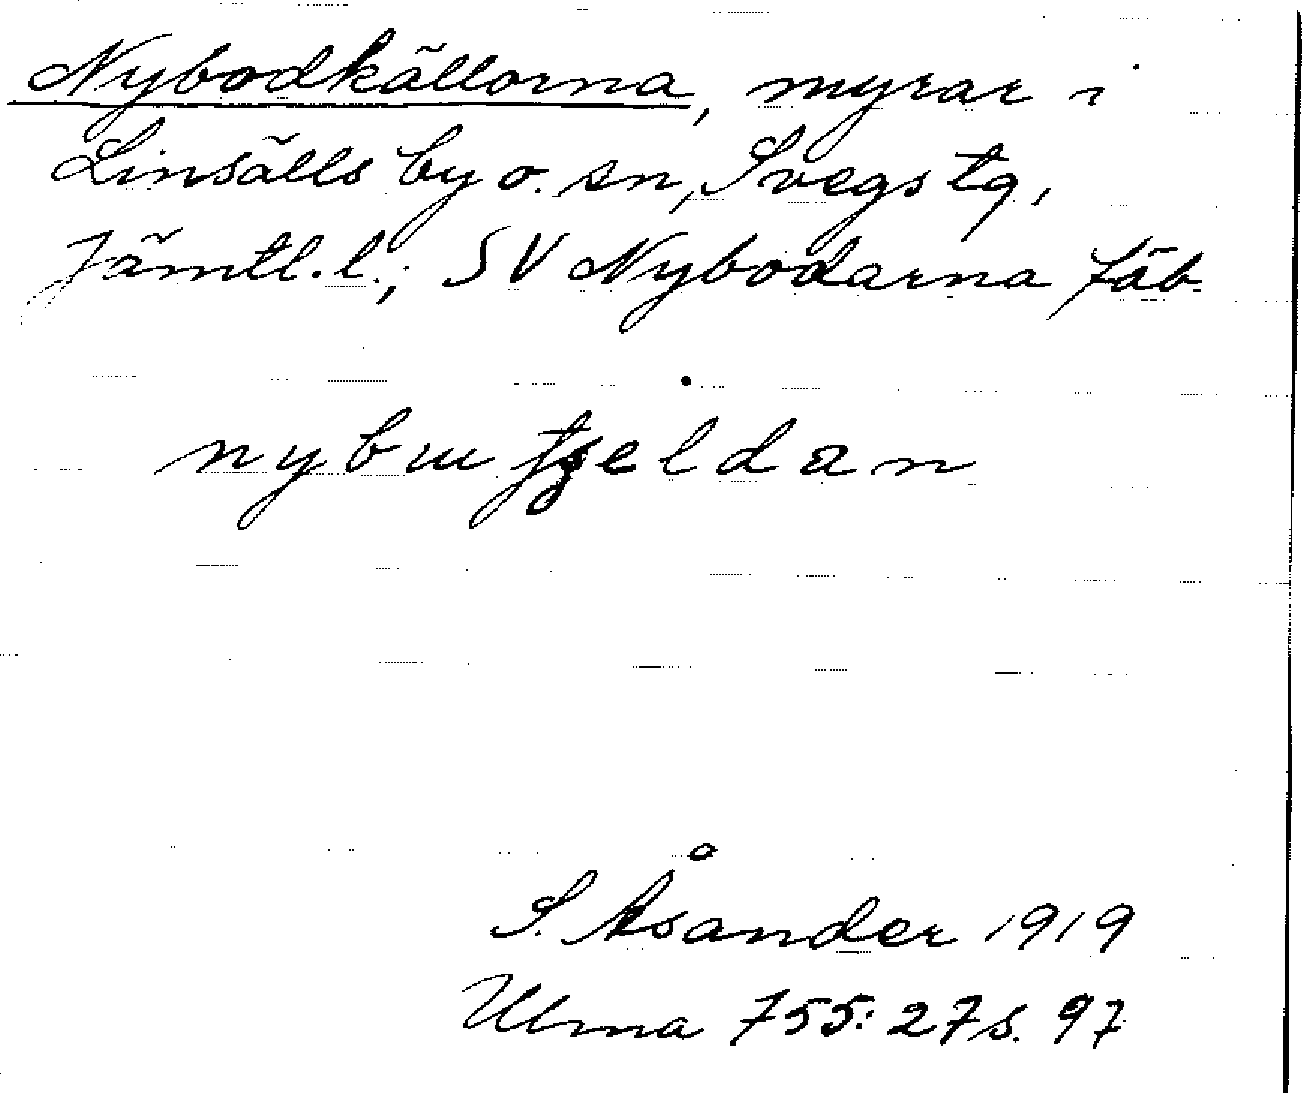 Nybodkällorna, myrar i
Linsälls by o. sn, Svegs tg,
Jämtl. l.; SV Nybodarna fäb.
nybɯ tʂeldan
S. Åsander 1919
Ulma 755: 27 s. 97